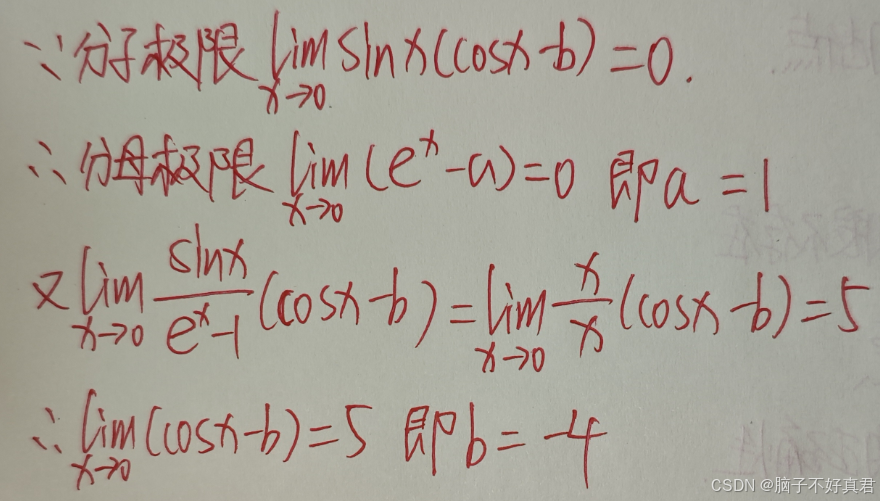 ∵分子极限 lim x→0 sinx(cosx-b)=0.
∴分母极限 lim x→0 (e^x-a)=0 即a=1
又 lim x→0 sinx/(e^x-1) (cosx-b)=lim x→0 x/x (cosx-b)=5
∴ lim x→0 (cosx-b)=5 即b=-4
CSDN @脑子不好真君